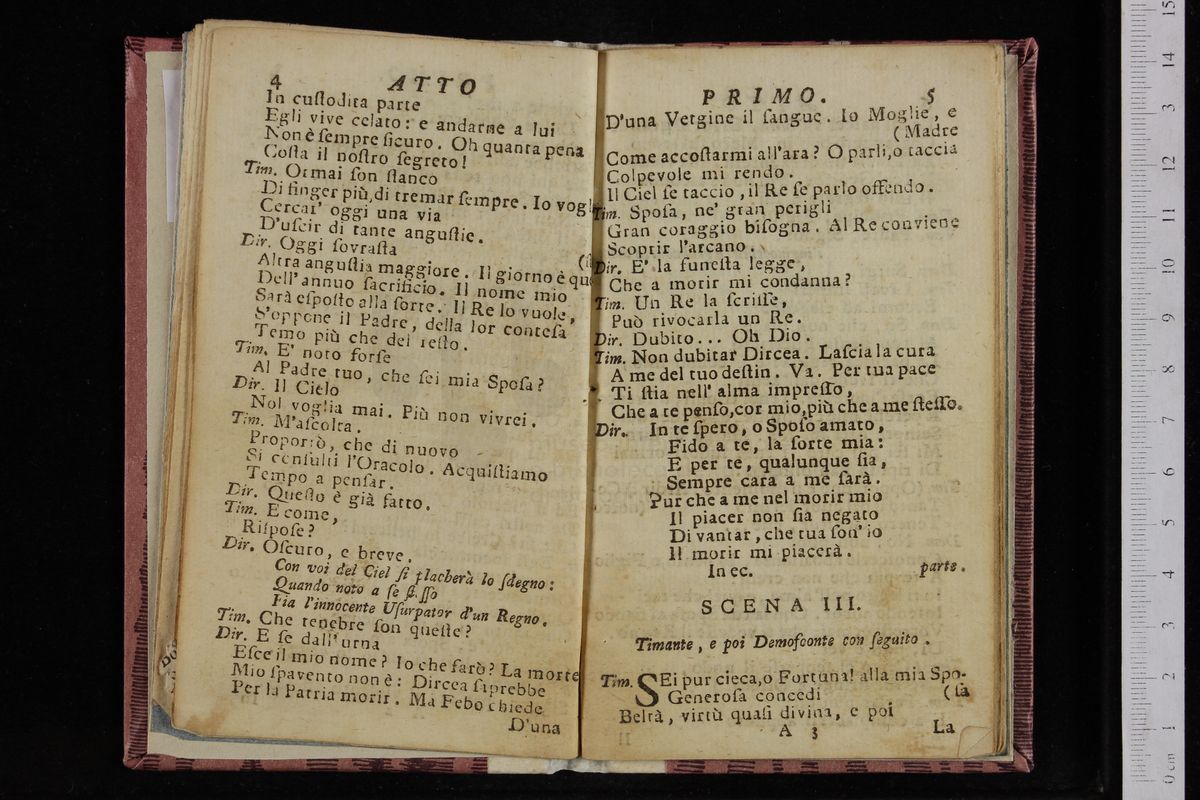 4 ATTO
In cuſtodita parte
Egli vive celato: e andarne a lui
Non è ſempre ſicuro. Oh quanta pena
Coſta il noſtro ſegreto!
Tim. Ormai ſon ſtanco
Di finger più, di tremar ſempre. Io vogl
Cercar' oggi una via
D'uſcir di tante anguſtie.
Dir. Oggi ſovraſta
Altra anguſtia maggiore. Il giorno è que
Dell'annuo ſacrificio. Il nome mio
Sarà eſpoſto alla ſorte. Il Re lo vuole,
S'oppone il Padre, della lor conteſa
Temo più che del reſto.
Tim. E' noto forſe
Al Padre tuo, che ſei mia Spoſa?
Dir. Il Cielo
Nol voglia mai. Più non vivrei.
Tim. M'aſcolta.
Proporrò, che di nuovo
Si conſulti l'Oracolo. Acquiſtiamo
Tempo a penſar.
Dir. Queſto è già fatto.
Tim. E come,
Riſpoſe?
Dir. Oſcuro, e breve.
Con voi del Ciel ſi placherà lo ſdegno:
Quando noto a ſe ſteſſo
Fia l'innocente Uſurpator d'un Regno.
Tim. Che tenebre ſon queſte?
Dir. E ſe dall'urna
Eſce il mio nome? Io che farò? La morte
Mio ſpavento non è: Dircea ſaprebbe
Per la Patria morir. Ma Febo chiede
D'una
PRIMO. 5
D'una Vergine il ſangue. Io Moglie, e
(Madre
Come accoſtarmi all'ara? O parli, o taccia
Colpevole mi rendo.
Il Ciel ſe taccio, il Re ſe parlo offendo.
Tim. Spoſa, ne' gran perigli
Gran coraggio biſogna. Al Re conviene
Scoprir l'arcano.
Dir. E' la funeſta legge,
Che a morir mi condanna?
Tim. Un Re la ſcriſſe,
Può rivocarla un Re.
Dir. Dubito... Oh Dio.
Tim. Non dubitar Dircea. Laſcia la cura
A me del tuo deſtin. Va. Per tua pace
Ti ſtia nell' alma impreſſo,
Che a te penſo, cor mio, più che a me ſteſſo.
Dir. In te ſpero, o Spoſo amato,
Fido a te, la ſorte mia:
E per te, qualunque ſia,
Sempre cara a me ſarà.
Pur che a me nel morir mio
Il piacer non ſia negato
Di vantar, che tua ſon' io
Il morir mi piacerà.
In ec. parte.
SCENA III.
Timante, e poi Demofoonte con ſeguito.
Tim. SEi pur cieca, o Fortuna! alla mia Spo-
Generoſa concedi (ſa
Beltà, virtù quaſi divina, e poi
A 3 La